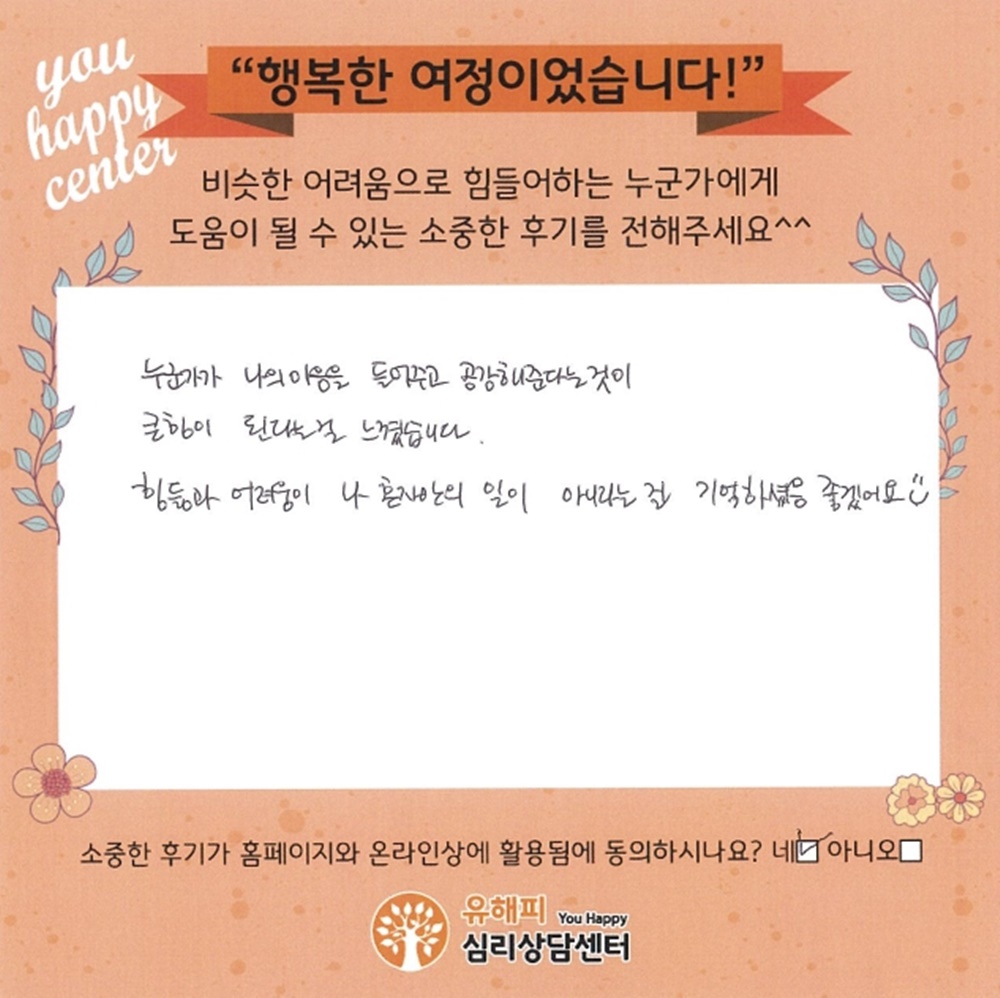 you
happy
center
“행복한 여정이었습니다!”
비슷한 어려움으로 힘들어하는 누군가에게
도움이 될 수 있는 소중한 후기를 전해주세요^^
누군가가 나의 마음을 들어주고 공감해준다는것이
큰힘이 된다는걸 느꼈습니다.
힘듦과 어려움이 나 혼자만의 일이 아니라는 걸 기억하셨음 좋겠어요
소중한 후기가 홈페이지와 온라인상에 활용됨에 동의하시나요? 네 아니오
유해피 You Happy
심리상담센터